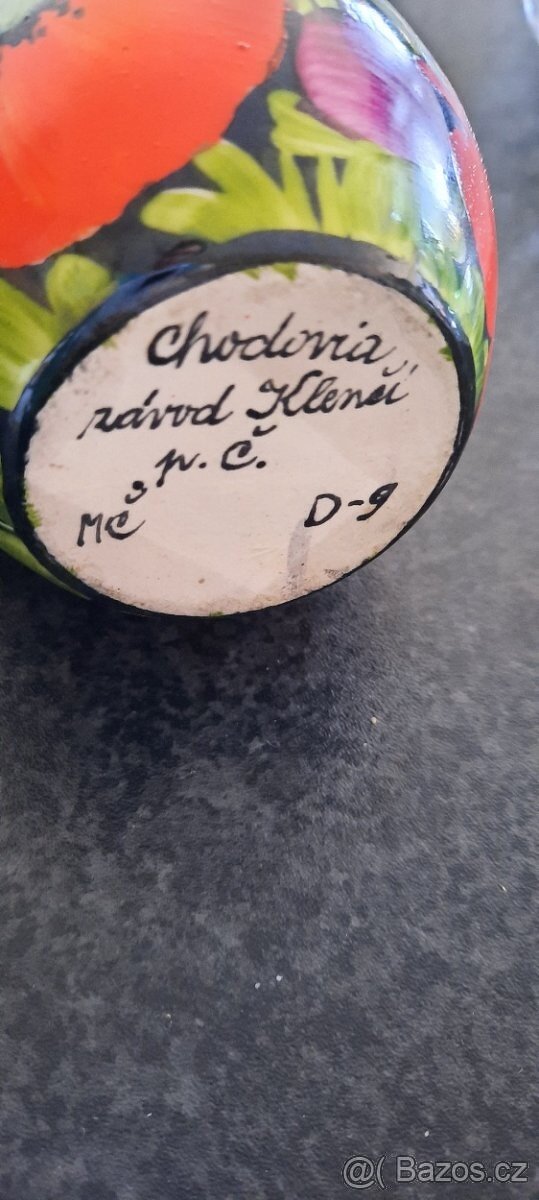 Chodovia
závod Klenčí
p. Č.
MČ D-9
@( Bazos.cz